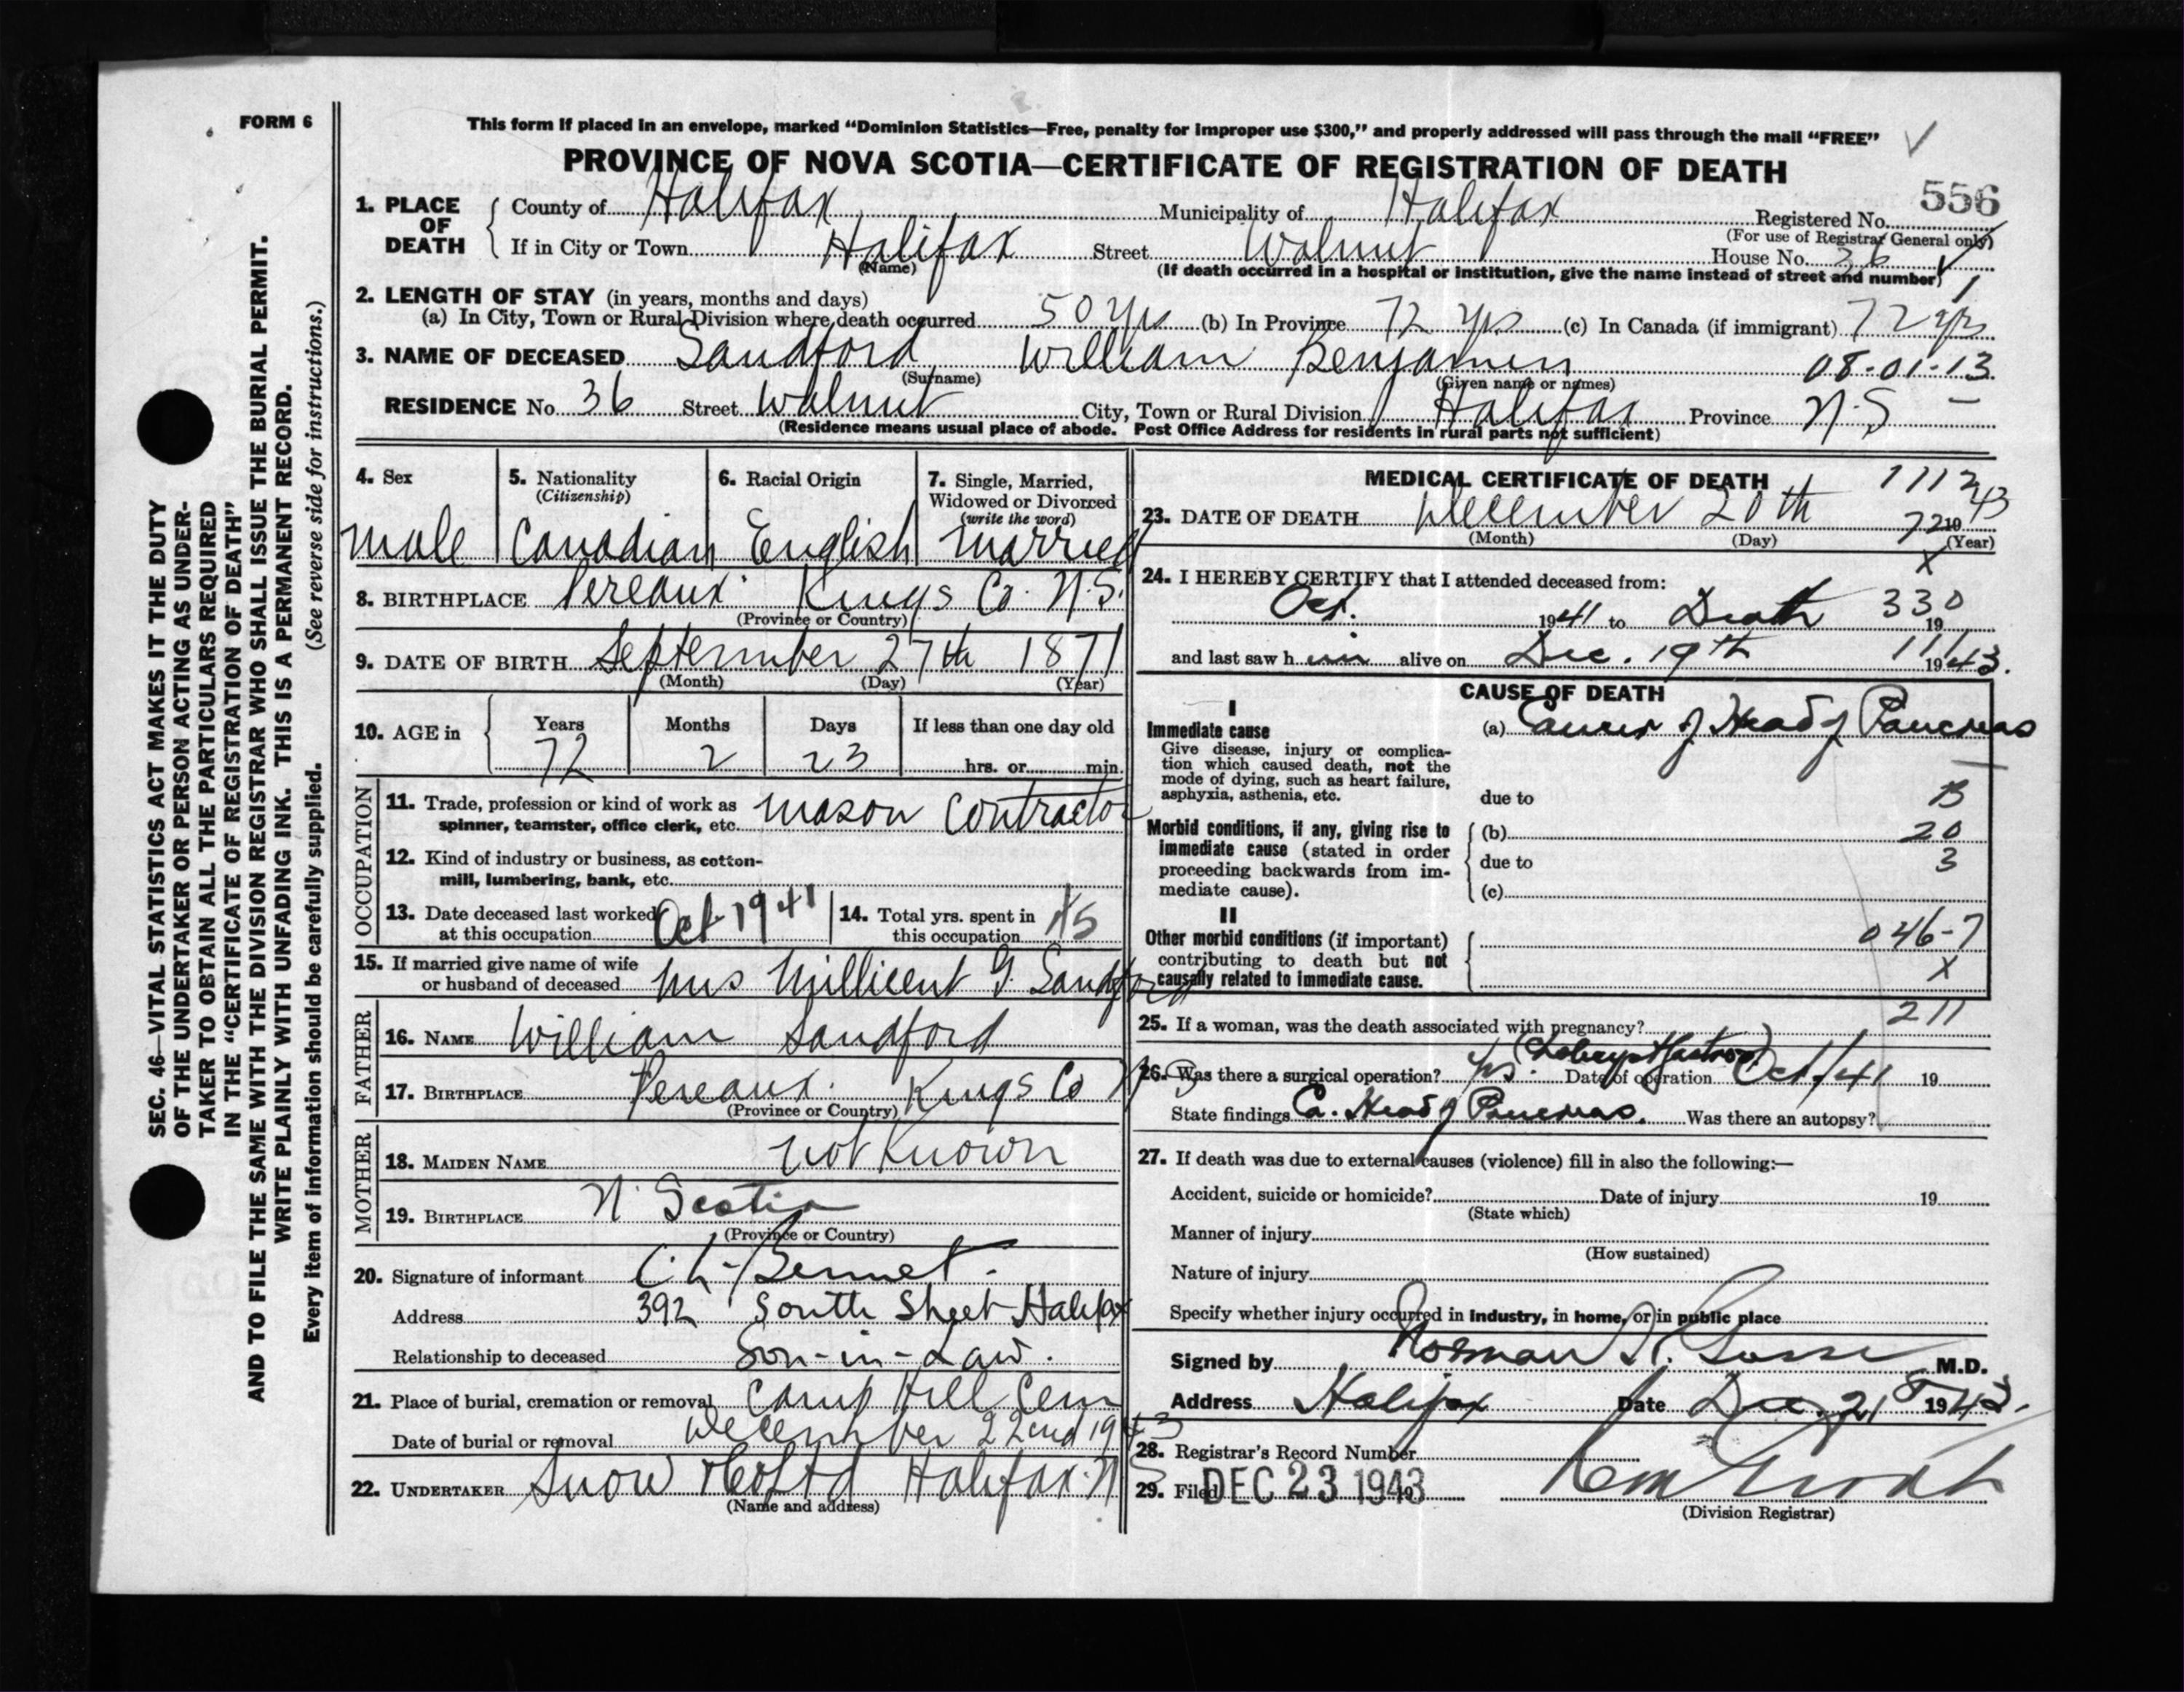 FORM 6
This form if placed in an envelope, marked "Dominion Statistics—Free, penalty for improper use $300," and properly addressed will pass through the mail "FREE"
PROVINCE OF NOVA SCOTIA—CERTIFICATE OF REGISTRATION OF DEATH
556
1. PLACE OF DEATH
County of Halifax Municipality of Halifax Registered No.
(For use of Registrar General only)
If in City or Town Halifax Street Walnut House No. 36
(Name) (If death occurred in a hospital or institution, give the name instead of street and number) 1
2. LENGTH OF STAY (in years, months and days)
(a) In City, Town or Rural Division where death occurred 50 yrs (b) In Province 72 yrs (c) In Canada (if immigrant) 72 yrs
3. NAME OF DECEASED Sandford William Benjamin 08-01-13
(Surname) (Given name or names)
RESIDENCE No. 36 Street Walnut City, Town or Rural Division Halifax Province N.S
(Residence means usual place of abode. Post Office Address for residents in rural parts not sufficient)
4. Sex 5. Nationality (Citizenship) 6. Racial Origin 7. Single, Married, Widowed or Divorced (write the word)
male Canadian English Married
8. BIRTHPLACE Pereaux Kings Co. N.S.
(Province or Country)
9. DATE OF BIRTH September 27th 1871
(Month) (Day) (Year)
10. AGE in Years Months Days If less than one day old
72 2 23 hrs. or min.
OCCUPATION
11. Trade, profession or kind of work as spinner, teamster, office clerk, etc. Mason Contractor
12. Kind of industry or business, as cotton-mill, lumbering, bank, etc.
13. Date deceased last worked at this occupation Oct 1941
14. Total yrs. spent in this occupation
15. If married give name of wife or husband of deceased Mrs Millicent G. Sandford
FATHER
16. NAME William Sandford
17. BIRTHPLACE Pereaux. Kings Co N.S
(Province or Country)
MOTHER
18. MAIDEN NAME not Known
19. BIRTHPLACE N. Scotia
(Province or Country)
20. Signature of informant C. L. Bennet.
Address 392 South Street Halifax
Relationship to deceased Son-in-Law.
21. Place of burial, cremation or removal Camp Hill Cem
Date of burial or removal December 22nd 1943
22. UNDERTAKER Snow & Co Ltd Halifax N S
(Name and address)
MEDICAL CERTIFICATE OF DEATH 1112
23. DATE OF DEATH December 20th 1943
72
(Month) (Day) (Year)
X
24. I HEREBY CERTIFY that I attended deceased from:
Oct. 1941 to Death 19
330
and last saw him alive on Dec. 19th 1943.
111
CAUSE OF DEATH
I
Immediate cause
Give disease, injury or complication which caused death, not the mode of dying, such as heart failure, asphyxia, asthenia, etc.
(a) Cancer of Head of Pancreas
due to B
Morbid conditions, if any, giving rise to immediate cause (stated in order proceeding backwards from immediate cause).
(b) 20
due to 3
(c)
II
Other morbid conditions (if important) contributing to death but not causally related to immediate cause.
046-7
X
211
25. If a woman, was the death associated with pregnancy?
26. Was there a surgical operation? yes. Date of operation Oct/41 19
State findings Ca. Head of Pancreas. Was there an autopsy?
27. If death was due to external causes (violence) fill in also the following:—
Accident, suicide or homicide? Date of injury 19
(State which)
Manner of injury
(How sustained)
Nature of injury
Specify whether injury occurred in industry, in home, or in public place
Signed by Norman H. Gosse M.D.
Address Halifax Date Dec. 21st 1943.
28. Registrar's Record Number
29. Filed DEC 23 1943
(Division Registrar)
SEC. 46—VITAL STATISTICS ACT MAKES IT THE DUTY
OF THE UNDERTAKER OR PERSON ACTING AS UNDER-
TAKER TO OBTAIN ALL THE PARTICULARS REQUIRED
IN THE "CERTIFICATE OF REGISTRATION OF DEATH"
AND TO FILE THE SAME WITH THE DIVISION REGISTRAR WHO SHALL ISSUE THE BURIAL PERMIT.
WRITE PLAINLY WITH UNFADING INK. THIS IS A PERMANENT RECORD.
Every item of information should be carefully supplied. (See reverse side for instructions.)